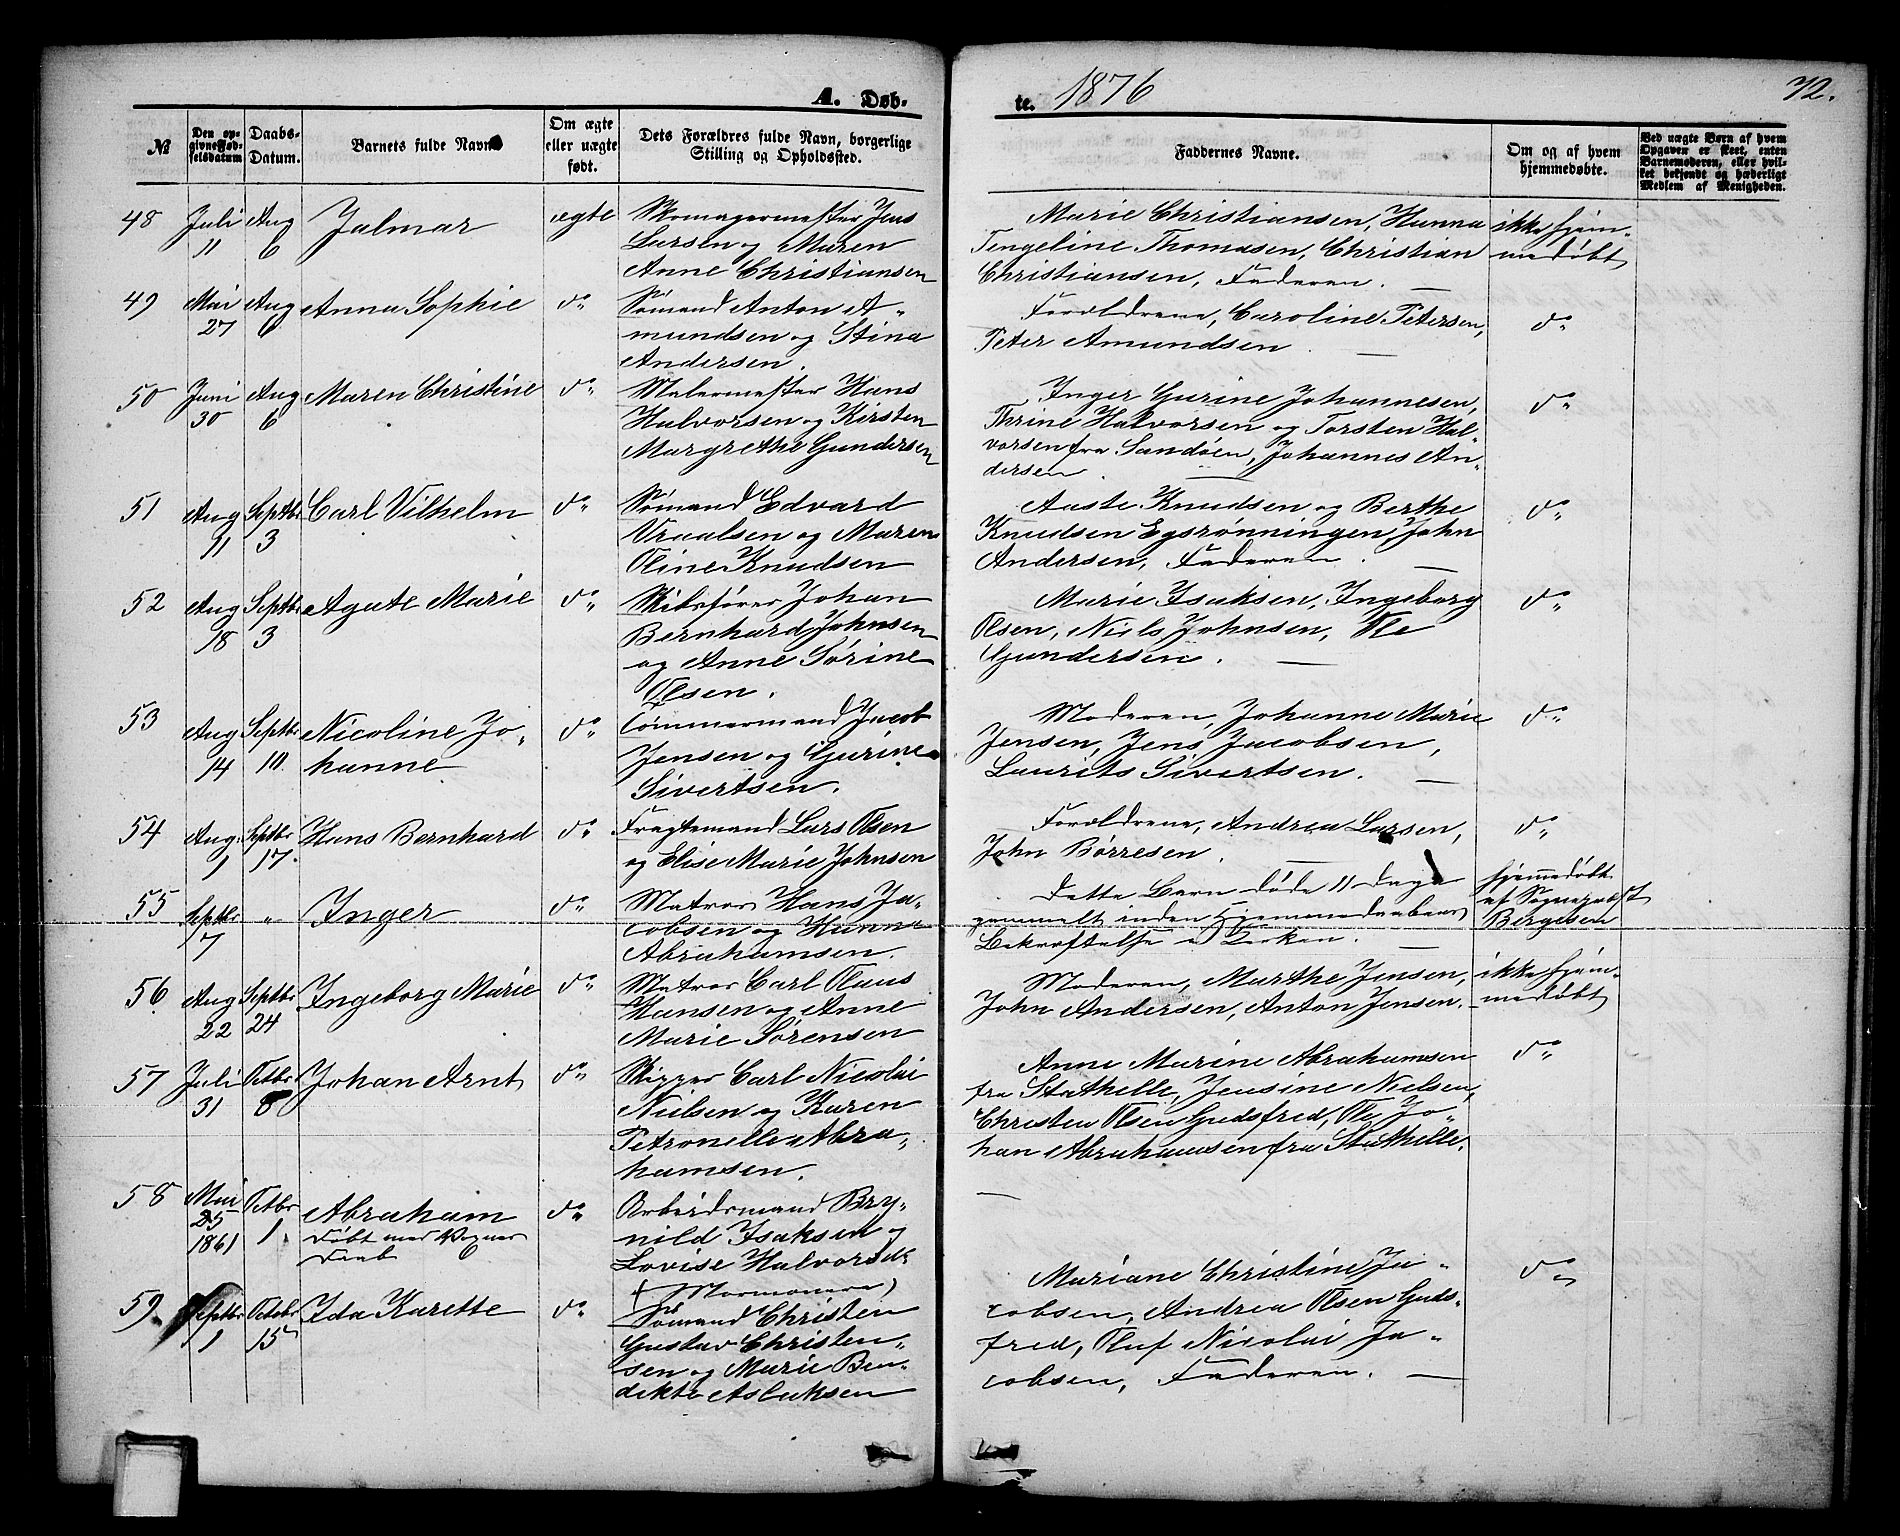 A. Døb-
te. 1876
72.
№
Den op-
givne Fød-
selsdatum
Daabs-
Datum.
Barnets fulde Navn
Om ægte
eller uægte
født.
Dets Forældres fulde Navn, borgerlige
Stilling og Opholdssted.
Faddernes Navne.
Om og af hvem
hjemmedøbte.
Ved uægte Børn af hvem
Opgaven er skeet, enten
Barnemoderen, eller hvil-
ket bekjendt og hæderligt
Medlem af Menigheden.
48
Juli
11
Aug
6
Jalmar
ægte
Skomagermester Jens
Larsen og Maren
Anne Christiansen
Marie Christiansen, Hanna
Tengeline Thomasen, Christian
Christiansen, Faderen.
ikke hjem-
medøbt
49
Mai
27
Aug
6
Anna Sophie
do
Sømand Anton A-
mundsen og Stina
Andersen.
Forældrene, Caroline Petersen,
Peter Amundsen.
do
50
Juni
30
Aug
6
Maren Christine
do
Malermester Hans
Halvorsen og Kirsten
Margrethe Gundersen
Inger Gurine Johannesen,
Thrine Halvorsen og Torsten Hal-
vorsen fra Sandøen, Johannes An-
dersen.
do
51
Aug
11
Septbr
3
Carl Vilhelm
do
Sømand Edvard
Vraalsen og Maren
Oline Knudsen
Aaste Knudsen og Berthe
Knudsen Egsrønningen, John
Andersen, Faderen.
do
52
Aug
18
Septbr
3
Agate Marie
do
Skibsfører Johan
Bernhard Johnsen
og Anne Sørine
Olsen.
Marie Isaksen, Ingeborg
Olsen, Niels Johnsen, Ole
Gundersen.
do
53
Aug
14
Septbr
10.
Nicoline Jo-
hanne
do
Tømmermand Jacob
Jensen og Gurine
Sivertsen.
Moderen, Johanne Marie
Jensen, Jens Jacobsen,
Laurits Sivertsen.
do
54
Aug.
1
Septbr
17.
Hans Bernhard
do
Fragtemand Lars Olsen
og Elise Marie Johnsen
Forældrene, Andrea Larsen,
John Børresen.
do
55
Septbr
17
"
Inger
do
Matros Hans Ja-
cobsen og Hanna
Abrahamsen.
Dette Barn døde 11 Dage
gammelt inden Hjemmedaabens
Bekræftelse i Kirken.
hjemmedøbt
af Sognepræst
Bergesen
56
Aug
22
Septbr
24
Ingeborg Marie
do
Matros Carl Olaus
Hansen og Anne
Marie Sørensen
Moderen, Marthe Jensen,
John Andersen, Anton Jensen.
ikke hjem-
medøbt
57
Juli
31
Octbr
8
Johan Arnt
do
Skipper Carl Nicolai
Nielsen og Karen
Petronelle Abra-
hamsen.
Anne Marine Abrahamsen
fra Stathelle, Jensine Nielsen,
Christen Olsen Gudsfred, Ole Jo-
han Abrahamsen fra Stathelle.
do
58
Mai
25
1861
Octbr
1.
Abraham
døbt med Voxnes
Daab
do
Arbeidsmand Bry-
nild Isaksen og
Lovise Halvorsdr
(Mormonere)
59.
Septbr
1
Octobr
15
Ida Karette
do
Sømand Christen
Gustav Christen-
sen og Marie Ben-
dikte Aslaksen
Mariane Christine Ja-
cobsen, Andrea Olsen Guds-
fred, Oluf Nicolai Ja-
cobsen, Faderen.
do